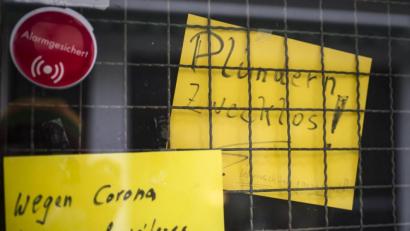 Alarmgesichert!
Plündern
Zwecklos!
Wegen Corona